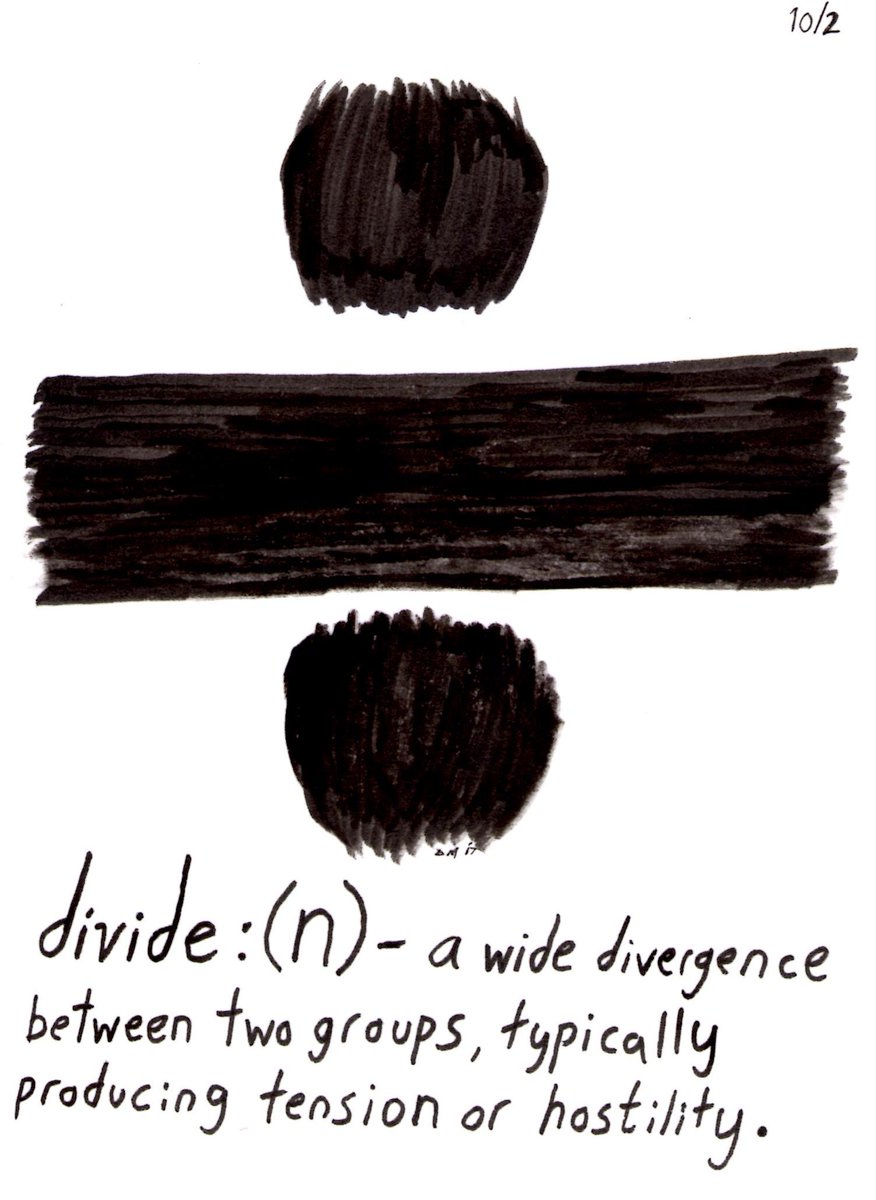 10/2
DM 17
divide:(n)- a wide divergence
between two groups, typically
producing tension or hostility.